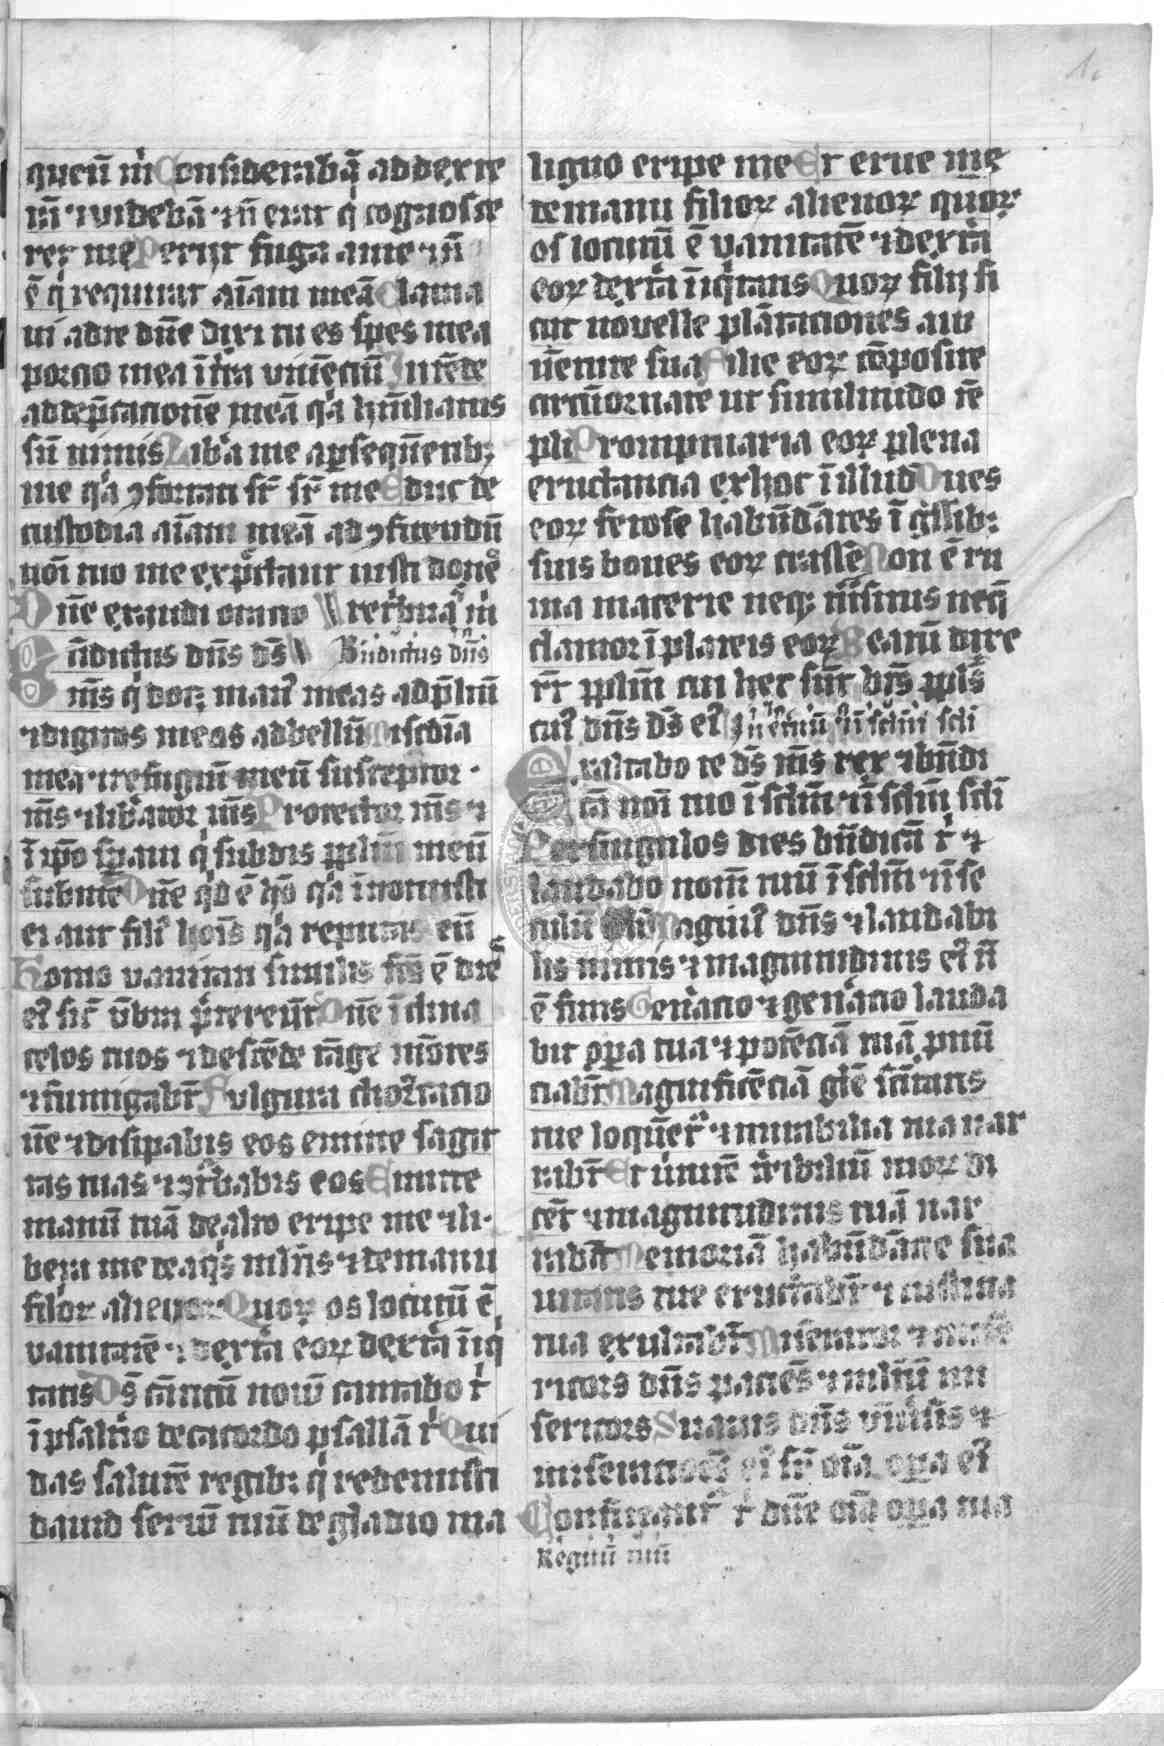 1.
queū m̄ Considerabā ad dexte
rā ⁊ uidebā ⁊ nō erat q̇ cognosce
ret me Perijt fuga a me ⁊ nō
ē q̇ requirat aīam meā Clama
ui ad te dn̄e dixi tu es spes mea
porcio mea ī tr̄a uiuēciū Intēde
ad dep̄cacionē meā q̇a hūiliatus
sū nimis Libͥa me a ꝑsequētibꝫ
me q̇a ꝯfortati st̄ sr̄ me Educ de
custodia aīam meā ad ꝯfitendū
noī tuo me expͨtant iusti donͨ
Dn̄e exaudi oracio
Bn̄dictus dn̄s ds̄ Bn̄dictus dn̄s
ms̄ q̇ docꝫ man⁹ meas ad p̄liū
⁊ digitos meos ad bellū Misc̄dia
mea ⁊ refugiū meū susceptor
ms̄ ⁊ libͥator ms̄ Protector ms̄ ⁊
ī ip̄o spaui q̇ subdis ppl̄m meū
sub me Dn̄e q̇d ē hō q̇a īnotuisti
ei aut fili⁹ hoīs q̇a reputas eū
Homo vanitati similis fc̄s ē die͛
ei⁹ sic̄ vmb̄ p̄tereūt Dn̄e īclina
celos tuos ⁊ descēde tāge mōtes
⁊ fūmigabt̄ Fulgura choruscacio
nē ⁊ disipabis eos emitte sagit
tas tuas ⁊ ꝯtͧbabis eos Emitte
manū tuā de alto eripe me ⁊ li
bera me de aq̇s ml̄tis ⁊ de manu
filior alienor Quoꝝ os locutū ē
vanitatē ⁊ dextͣa eoꝝ dextͣa īiq̇
tatis Ds̄ cāticū nouū cantabo tͥ
ī psaltͥio decacordo psallā tͥ Qui
das salutē regibꝫ q̇ redemisti
dauid seruū tuū de gladio ma
ligno eripe me Et erue me
de manu filioꝝ alienoꝝ quoꝝ
os locutū ē vanitatē ⁊ dextͣa
eoꝝ dextͣa īiq̇tatis Quoꝝ filij si
cut nouelle plātaciones a iu
uētute sua Filie eoꝝ cōposite
circūornate ut similitudo tē
pli Promptuaria eoꝝ plena
eructancia ex hoc ī illud Oues
eoꝝ fetose habūdātes ī gͬssibꝫ
suis boues eoꝝ crasse Non ē ru
ina macerie neqꝫ tͬnsitus neqꝫ
clamor ī plateis eoꝝ Beatū dixe
rt̄ ppl̄m cui hec sūt bt̄s ppl̄s
cui⁹ dn̄s ds̄ ei⁹
Exaltabo te ds̄ ms̄ rex ⁊ bn̄di
cā noī tuo ī sc̄lm̄ ⁊ ī sc̄lm̄ sc̄li
Per singulos dies bn̄dicā tͥ ⁊
laudabo nom̄ tuū ī sc̄lm̄ ⁊ ī se
culū Magn⁹ dn̄s ⁊ laudabi
lis nimis ⁊ magnitudinis ei⁹ nō
ē finis Genͬacio ⁊ genͬacio lauda
bit opa tua ⁊ potēciā tuā pnū
ciabt̄ Magnificēciā glē sc̄itatis
tue loquēt̄ ⁊ mirabilia tua nar
rabt̄ Et ūtutē tͬribiliū tuoꝝ di
cēt ⁊ magnitudinis tuā nar
rabt̄ Memoriā habūdācie sua
uitatis tue eructabt̄ ⁊ iusticia
tua exultabt̄ Misēator ⁊ mise
ricors dn̄s paciēs ⁊ ml̄tū mi
sericors Suauis dn̄s vniūsis ⁊
miseraciōēs ei⁹ sr̄ oīa opa ei⁹
Confiteant̄ tͥ dn̄e oīa opa tua
Regnū tuū